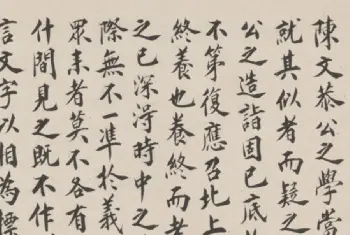 陳文恭公之學當
就其似者而疑之
公之造詣固已底
不第復應召北上
終養也養終而者
之已深得時中之
際無不一準於義
眾耒者莫不各有
什間見之既不作
言文字以相為標